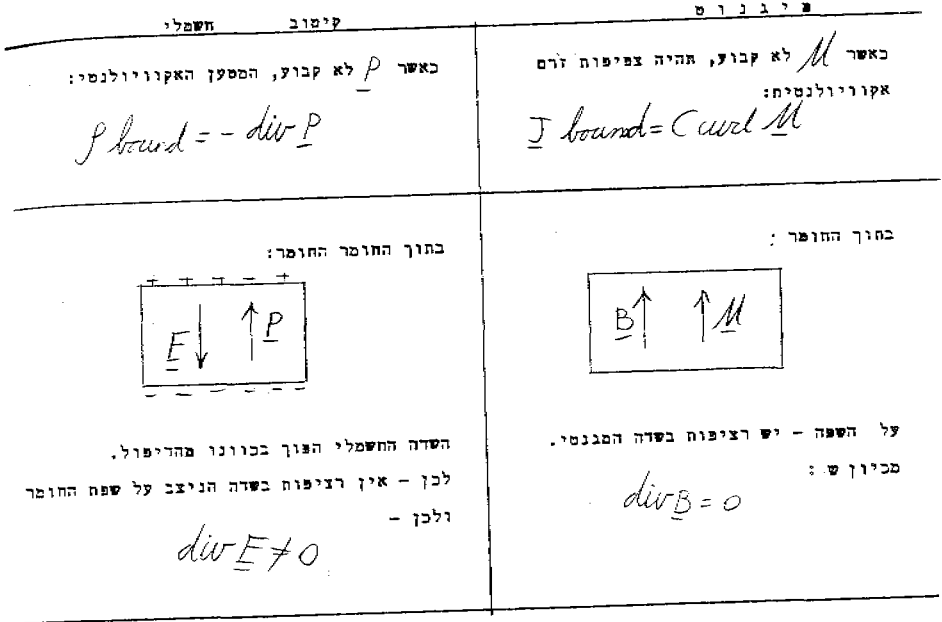 מיגנוט
קיטוב חשמלי
כאשר M לא קבוע, תהיה צפיפות זרם
אקוויולנטית:
J bound = C curl M
כאשר P לא קבוע, המטען האקוויולנטי:
ρ bound = - div P
בתוך החומר :
B M
על השפה - יש רציפות בשדה המגנטי.
מכיון ש :
div B = 0
בתוך החומר החומר:
+ + + + +
E P
- - - - -
השדה החשמלי הפוך בכוונו מהדיפול.
לכן - אין רציפות בשדה הניצב על שפת החומר
ולכן -
div E ≠ 0